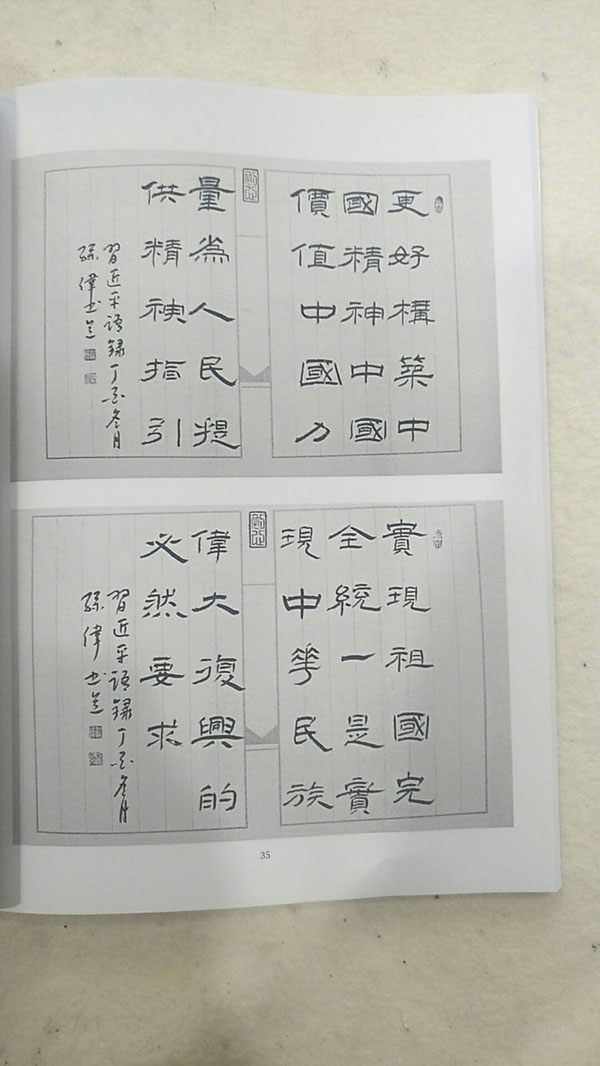 更好構築中
國精神中國
價值中國力
量為人民提
供精神指引
習近平語録丁酉冬月
孫偉書於
實現祖國完
全統一是實
現中華民族
偉大復興的
必然要求
習近平語録丁酉冬月
孫偉書於
35